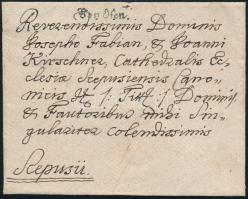 Von Ofen
Reverendissimis Dominis
Josepho Fabian, & Joanni
Kirschner, Cathedralis Ec-
clesiæ Scepusiensis Cano-
nicis, &: /: Titt :/ Dominis,
& Fautoribus mihi Sin-
gulariter Colendissimis
Scepusii.